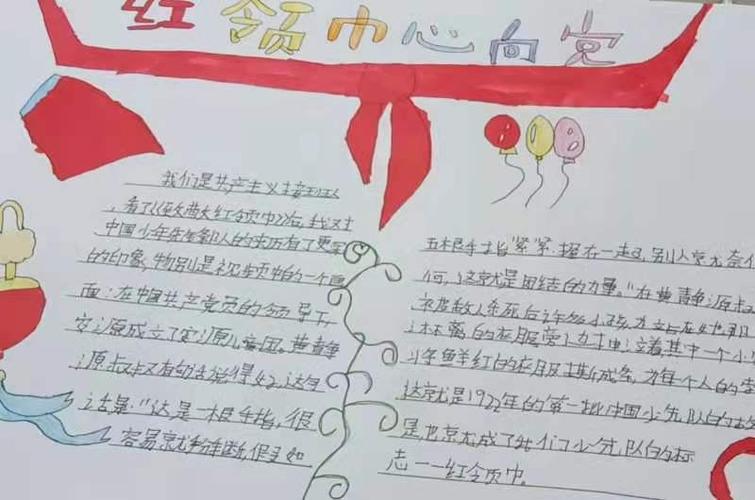 红领巾心向党
我们是共产主义接班人
,看了《火两大红领巾》后,我对
中国少年先锋队的来历有了更深
的印象,特别是视频中的一个画
面:在中国共产党员的领导下,
安源成立了安源儿童团。黄静源
源叔叔有句话说得好,这句
话是:“这是一根手指,很
容易就折断,但是如
五根手指紧紧握在一起,别人就无奈
何,这就是团结的力量。”在黄静源叔
被敌人杀死后
的衣服旁
其中一个小
鲜红的衣服
每个人的
这就是1922年的第一批中国少先队
是也就成了我们少先队的标
志——红领巾。